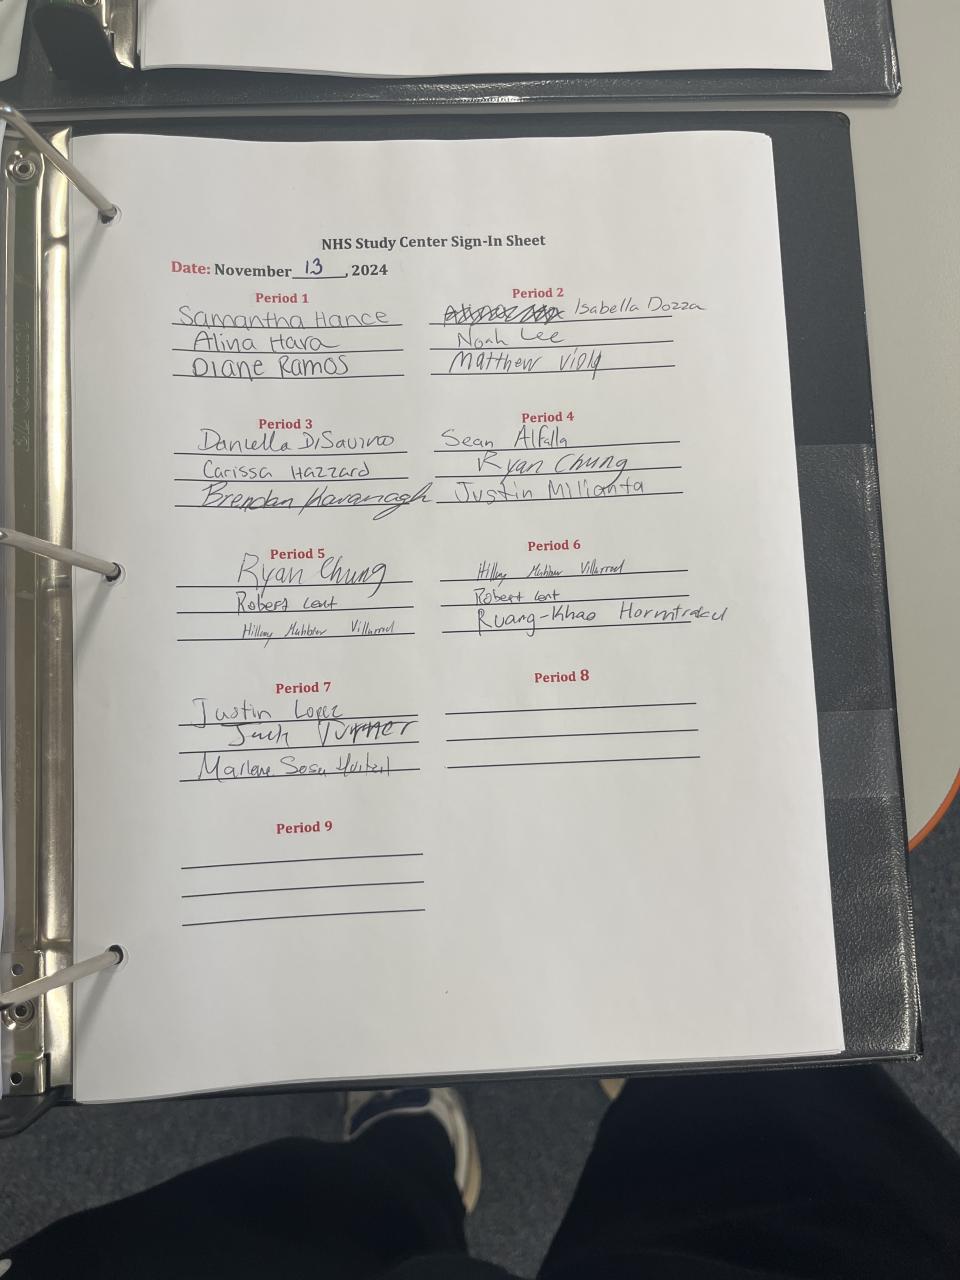 NHS Study Center Sign-In Sheet
Date: November 13, 2024
Period 1
Samantha Hance
Alina Hara
Diane Ramos
Period 2
Isabella Dozza
Noah Lee
Matthew Viola
Period 3
Daniella DiSavino
Carissa Hazzard
Brendan Kavanagh
Period 4
Sean Alfalla
Ryan Chung
Justin Milianta
Period 5
Ryan Chung
Robert Lent
Period 6
Robert Lent
Ruang-Khao
Period 7
Justin Lopez
Jack Turner
Marlene Sosa
Period 8
Period 9